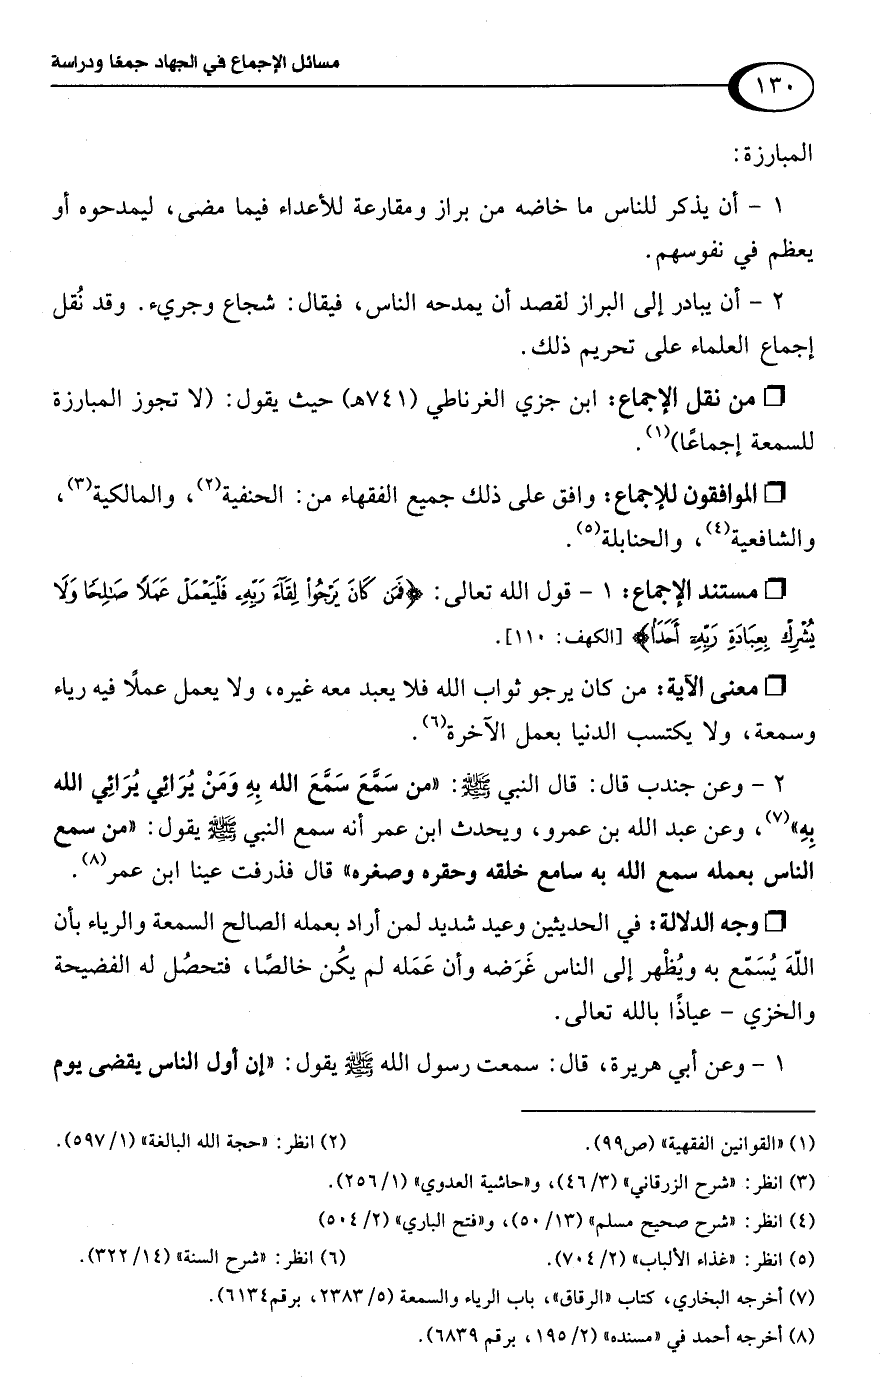 مسائل الإجماع في الجهاد جمعًا ودراسة
١٣٠
المبارزة:
١ - أن يذكر للناس ما خاضه من براز ومقارعة للأعداء فيما مضى، ليمدحوه أو
يعظم في نفوسهم.
٢ - أن يبادر إلى البراز لقصد أن يمدحه الناس، فيقال: شجاع وجريء. وقد نُقل
إجماع العلماء على تحريم ذلك.
❒ من نقل الإجماع: ابن جزي الغرناطي (٧٤١هـ) حيث يقول: (لا تجوز المبارزة
للسمعة إجماعًا)(١).
❒ الموافقون للإجماع: وافق على ذلك جميع الفقهاء من: الحنفية(٢)، والمالكية(٣)،
والشافعية(٤)، والحنابلة(٥).
❒ مستند الإجماع: ١ - قول الله تعالى: ﴿فَمَن كَانَ يَرْجُواْ لِقَآءَ رَبِّهِۦ فَلْيَعْمَلْ عَمَلًا صَٰلِحًا وَلَا
يُشْرِكْ بِعِبَادَةِ رَبِّهِۦٓ أَحَدًۢا﴾ [الكهف: ١١٠].
❒ معنى الآية: من كان يرجو ثواب الله فلا يعبد معه غيره، ولا يعمل عملًا فيه رياء
وسمعة، ولا يكتسب الدنيا بعمل الآخرة(٦).
٢ - وعن جندب قال: قال النبي ﷺ: «من سَمَّعَ سَمَّعَ الله بِهِ وَمَنْ يُرَائِي يُرَائِي الله
بِهِ»(٧)، وعن عبد الله بن عمرو، ويحدث ابن عمر أنه سمع النبي ﷺ يقول: «من سمع
الناس بعمله سمع الله به سامع خلقه وحقره وصغره» قال فذرفت عينا ابن عمر(٨).
❒ وجه الدلالة: في الحديثين وعيد شديد لمن أراد بعمله الصالح السمعة والرياء بأن
اللّهَ يُسَمّع به ويُظْهر إلى الناس غَرَضه وأن عَمَله لم يكُن خالصًا، فتحصُل له الفضيحة
والخزي - عياذًا بالله تعالى.
١ - وعن أبي هريرة، قال: سمعت رسول الله ﷺ يقول: «إن أول الناس يقضى يوم
(١) «القوانين الفقهية» (ص٩٩). (٢) انظر: «حجة الله البالغة» (١/ ٥٩٧).
(٣) انظر: «شرح الزرقاني» (٣/ ٤٦)، و«حاشية العدوي» (١/ ٢٥٦).
(٤) انظر: «شرح صحيح مسلم» (١٣/ ٥٠)، و«فتح الباري» (٢/ ٥٠٤)
(٥) انظر: «غذاء الألباب» (٢/ ٧٠٤). (٦) انظر: «شرح السنة» (١٤/ ٣٢٢).
(٧) أخرجه البخاري، كتاب «الرقاق»، باب الرياء والسمعة (٥/ ٢٣٨٣، برقم٦١٣٤).
(٨) أخرجه أحمد في «مسنده» (٢/ ١٩٥، برقم ٦٨٣٩).